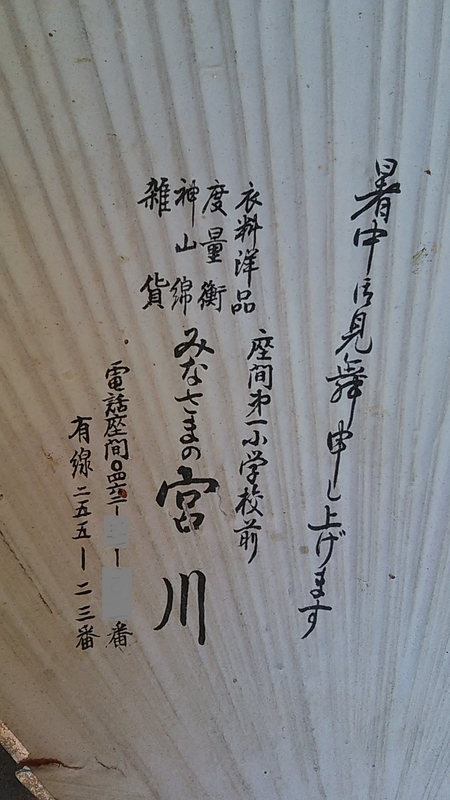 暑中御見舞申し上げます
衣料洋品
度量衡
神山綿
雑貨
座間第一小学校前
みなさまの宮川
電話座間〇四六二ー ー 番
有線二五五ー二三番